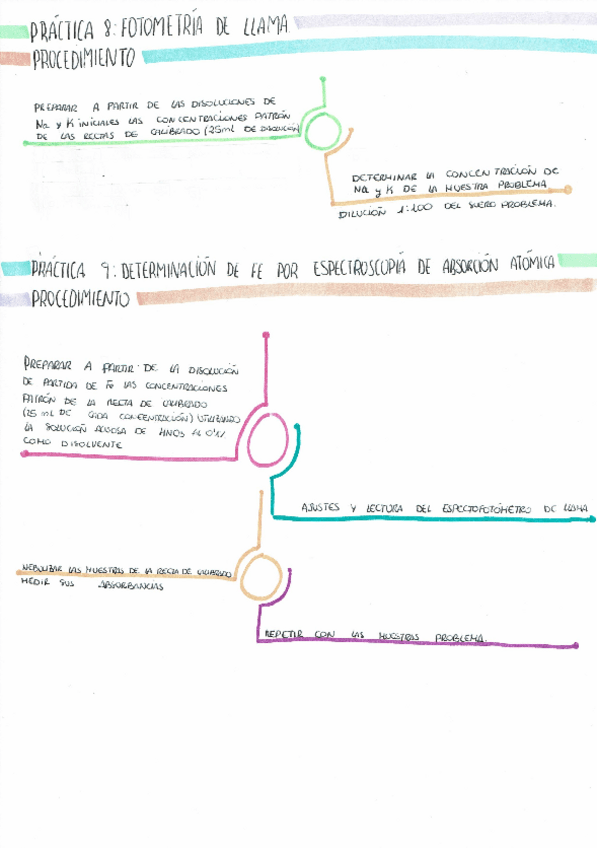 PRÁCTICA 8: FOTOMETRÍA DE LLAMA
PROCEDIMIENTO
PREPARAR A PARTIR DE LAS DISOLUCIONES DE
Na y K INICIALES LAS CONCENTRACIONES PATRÓN
DE LAS RECTAS DE CALIBRADO (25ml DE DISOLUCIÓN)
DETERMINAR LA CONCENTRACIÓN DE
Na y K DE LA MUESTRA PROBLEMA
DILUCIÓN 1:100 DEL SUERO PROBLEMA.
PRÁCTICA 9: DETERMINACIÓN DE FE POR ESPECTROSCOPÍA DE ABSORCIÓN ATÓMICA
PROCEDIMIENTO
PREPARAR A PARTIR DE LA DISOLUCIÓN
DE PARTIDA DE Fe LAS CONCENTRACIONES
PATRÓN DE LA RECTA DE CALIBRADO
(25 ml DE CADA CONCENTRACIÓN) UTILIZANDO
LA SOLUCIÓN ACUOSA DE HNO3 AL 0'1%
COMO DISOLVENTE
AJUSTES Y LECTURA DEL ESPECTOFOTÓMETRO DE LLAMA
NEBULIZAR LAS MUESTRAS DE LA RECTA DE CALIBRADO
MEDIR SUS ABSORBANCIAS
REPETIR CON LAS MUESTRAS PROBLEMA.